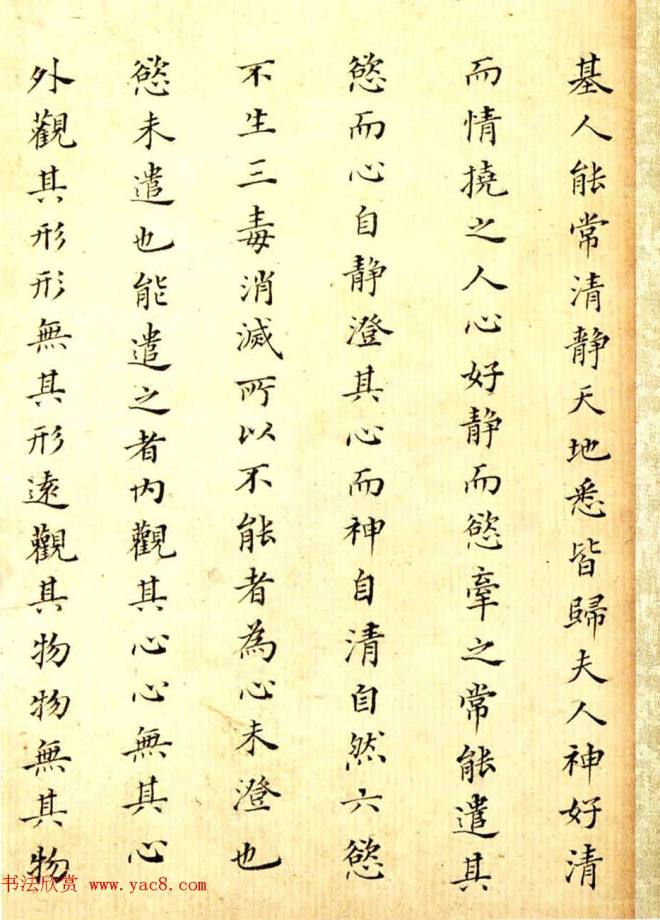 基人能常清靜天地悉皆歸夫人神好清
而情撓之人心好靜而慾牽之常能遣其
慾而心自靜澄其心而神自清自然六慾
不生三毒消滅所以不能者為心未澄也
慾未遣也能遣之者內觀其心心無其心
外觀其形形無其形遠觀其物物無其物
书法欣赏 www.yac8.com